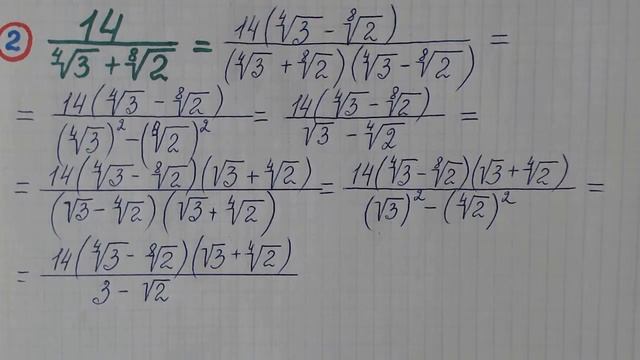 2 14/(⁴√3 + ⁸√2) = 14(⁴√3 - ⁸√2)/((⁴√3 + ⁸√2)(⁴√3 - ⁸√2)) =
= 14(⁴√3 - ⁸√2)/((⁴√3)² - (⁸√2)²) = 14(⁴√3 - ⁸√2)/(√3 - ⁴√2) =
= 14(⁴√3 - ⁸√2)(√3 + ⁴√2)/((√3 - ⁴√2)(√3 + ⁴√2)) = 14(⁴√3 - ⁸√2)(√3 + ⁴√2)/((√3)² - (⁴√2)²) =
= 14(⁴√3 - ⁸√2)(√3 + ⁴√2)/(3 - √2)